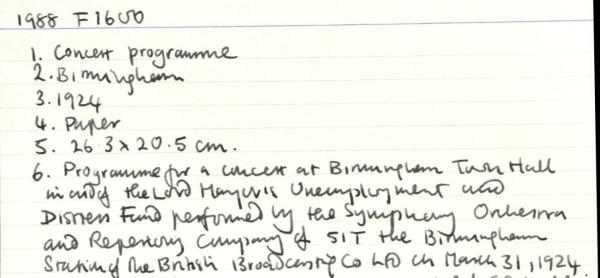 1988 F1600
1. Concert programme
2. Birmingham
3. 1924
4. Paper
5. 26.3 x 20.5 cm.
6. Programme for a concert at Birmingham Town Hall
in aid of the Lord Mayor's Unemployment and
Distress Fund performed by the Symphony Orchestra
and Repertory Company of 5IT the Birmingham
Station of the British Broadcasting Co Ltd on March 31, 1924